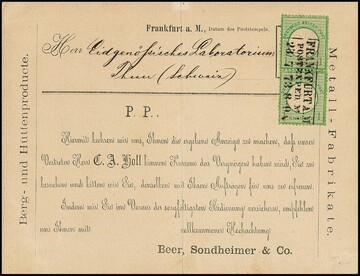 Frankfurt a. M., Datum des Poststempels.
Herr Eidgenössisches Laboratorium
Thun (Schweiz)
FRANKFURT A.M.
POSTEXPED.
Berg- und Huttenproducte.
Metall-Fabrikate.
P. P.
Hiermit beehren wir uns, Ihnen die ergebene Anzeige zu machen, daß unser
Vertreter Herr C. A. Boll binnen Kurzem das Vergnügen haben wird, Sie zu
besuchen und bitten wir Sie, denselben mit Ihren Aufträgen für uns zu erfreuen.
Indem wir Sie im Voraus der sorgfältigsten Bedienung versichern, empfehlen
wir Ihnen mit vollkommener Hochachtung
Beer, Sondheimer & Co.